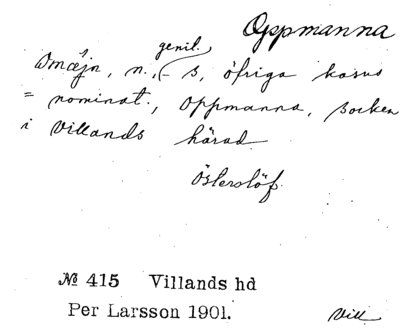 Oppmanna
genit.
n., - s, öfriga kasus
= nominat., Oppmanna, socken
i Villands härad.
Österslöf.
№ 415 Villands hd
Per Larsson 1901.
Vill